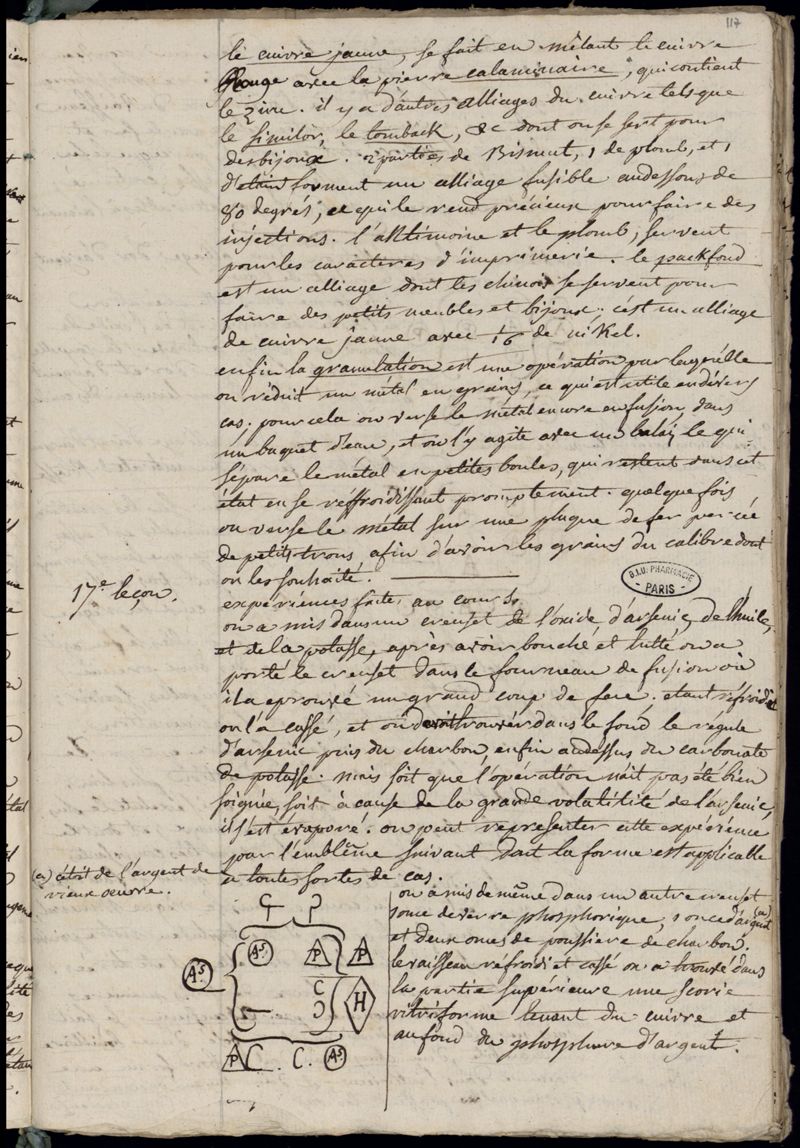 117
le cuivre jaune, se fait en mêlant le cuivre
Rouge avec la pierre calaminaire, qui contient
le zinc. il y a d'autres alliages du cuivre tels que
le similor, le tomback, &c dont on se sert pour
des bijoux. 2 parties de Bismut, 1 de plomb, et 1
d'etain forment un alliage fusible au dessous de
80 degrés, ce qui le rend précieux pour faire des
injections. l'antimoine et le plomb, servent
pour les caractères d'imprimerie. le packfond
est un alliage dont les chinois se servent pour
faire des petits meubles et bijoux. c'est un alliage
de cuivre jaune avec 1/16 de nikel.
enfin la granulation est une opération par laquelle
on réduit un métal en grains, ce qui est utile en divers
cas. pour cela on verse le métal encore en fusion dans
un baquet d'eau, et on l'y agite avec un balai, ce qui
sépare le métal en petites boules, qui restent dans cet
état en se réffroidissant promptement. quelque fois
on verse le métal sur une plaque de fer percée
de petits trous afin d'avoir les grains du calibre dont
on les souhaite.
B.I.U. PHARMACIE
PARIS
17e leçon.
expériences faites au cours.
on a mis dans un creuset de l'oxide d'arsenic, de l'huile,
et de la potasse, après avoir bouché et lutté on a
porté le creuset dans le fourneau de fusion où
il a eprouvé un grand coup de feu. etant réfroidi
on l'a cassé, et on devoit trouver dans le fond le régule
d'arsenic puis du charbon, enfin au dessus du carbonate
de potasse. mais soit que l'opération n'ait pas été bien
soignée, soit à cause de la grande volatilité de l'arsenic,
il s'est évaporé. on peut representer cette expérience
par l'emblême suivant dont la forme est applicable
a toutes sortes de cas.
(a) c'étoit de l'argent de
vieux oeuvre.
on a mis de même dans un autre creuset
1 once de verre phosphorique, 1 once d'argent (a)
et deux onces de poussiere de charbon.
le vaisseau réfroidi et cassé on a trouvé dans
la partie supérieure une scorie
vitriforme tenant du cuivre et
au fond du phosphure d'argent.
As
As
P P
C
H
P C. C. As